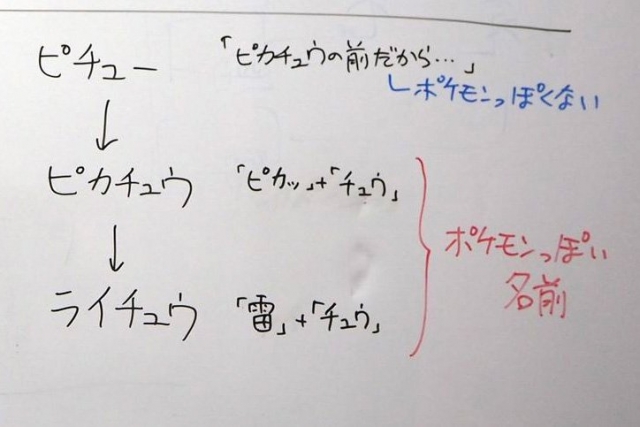 ピチュー 「ピカチュウの前だから…」
└ポケモンっぽくない
↓
ピカチュウ 「ピカッ」+「チュウ」
↓
ポケモンっぽい
名前
ライチュウ 「雷」+「チュウ」